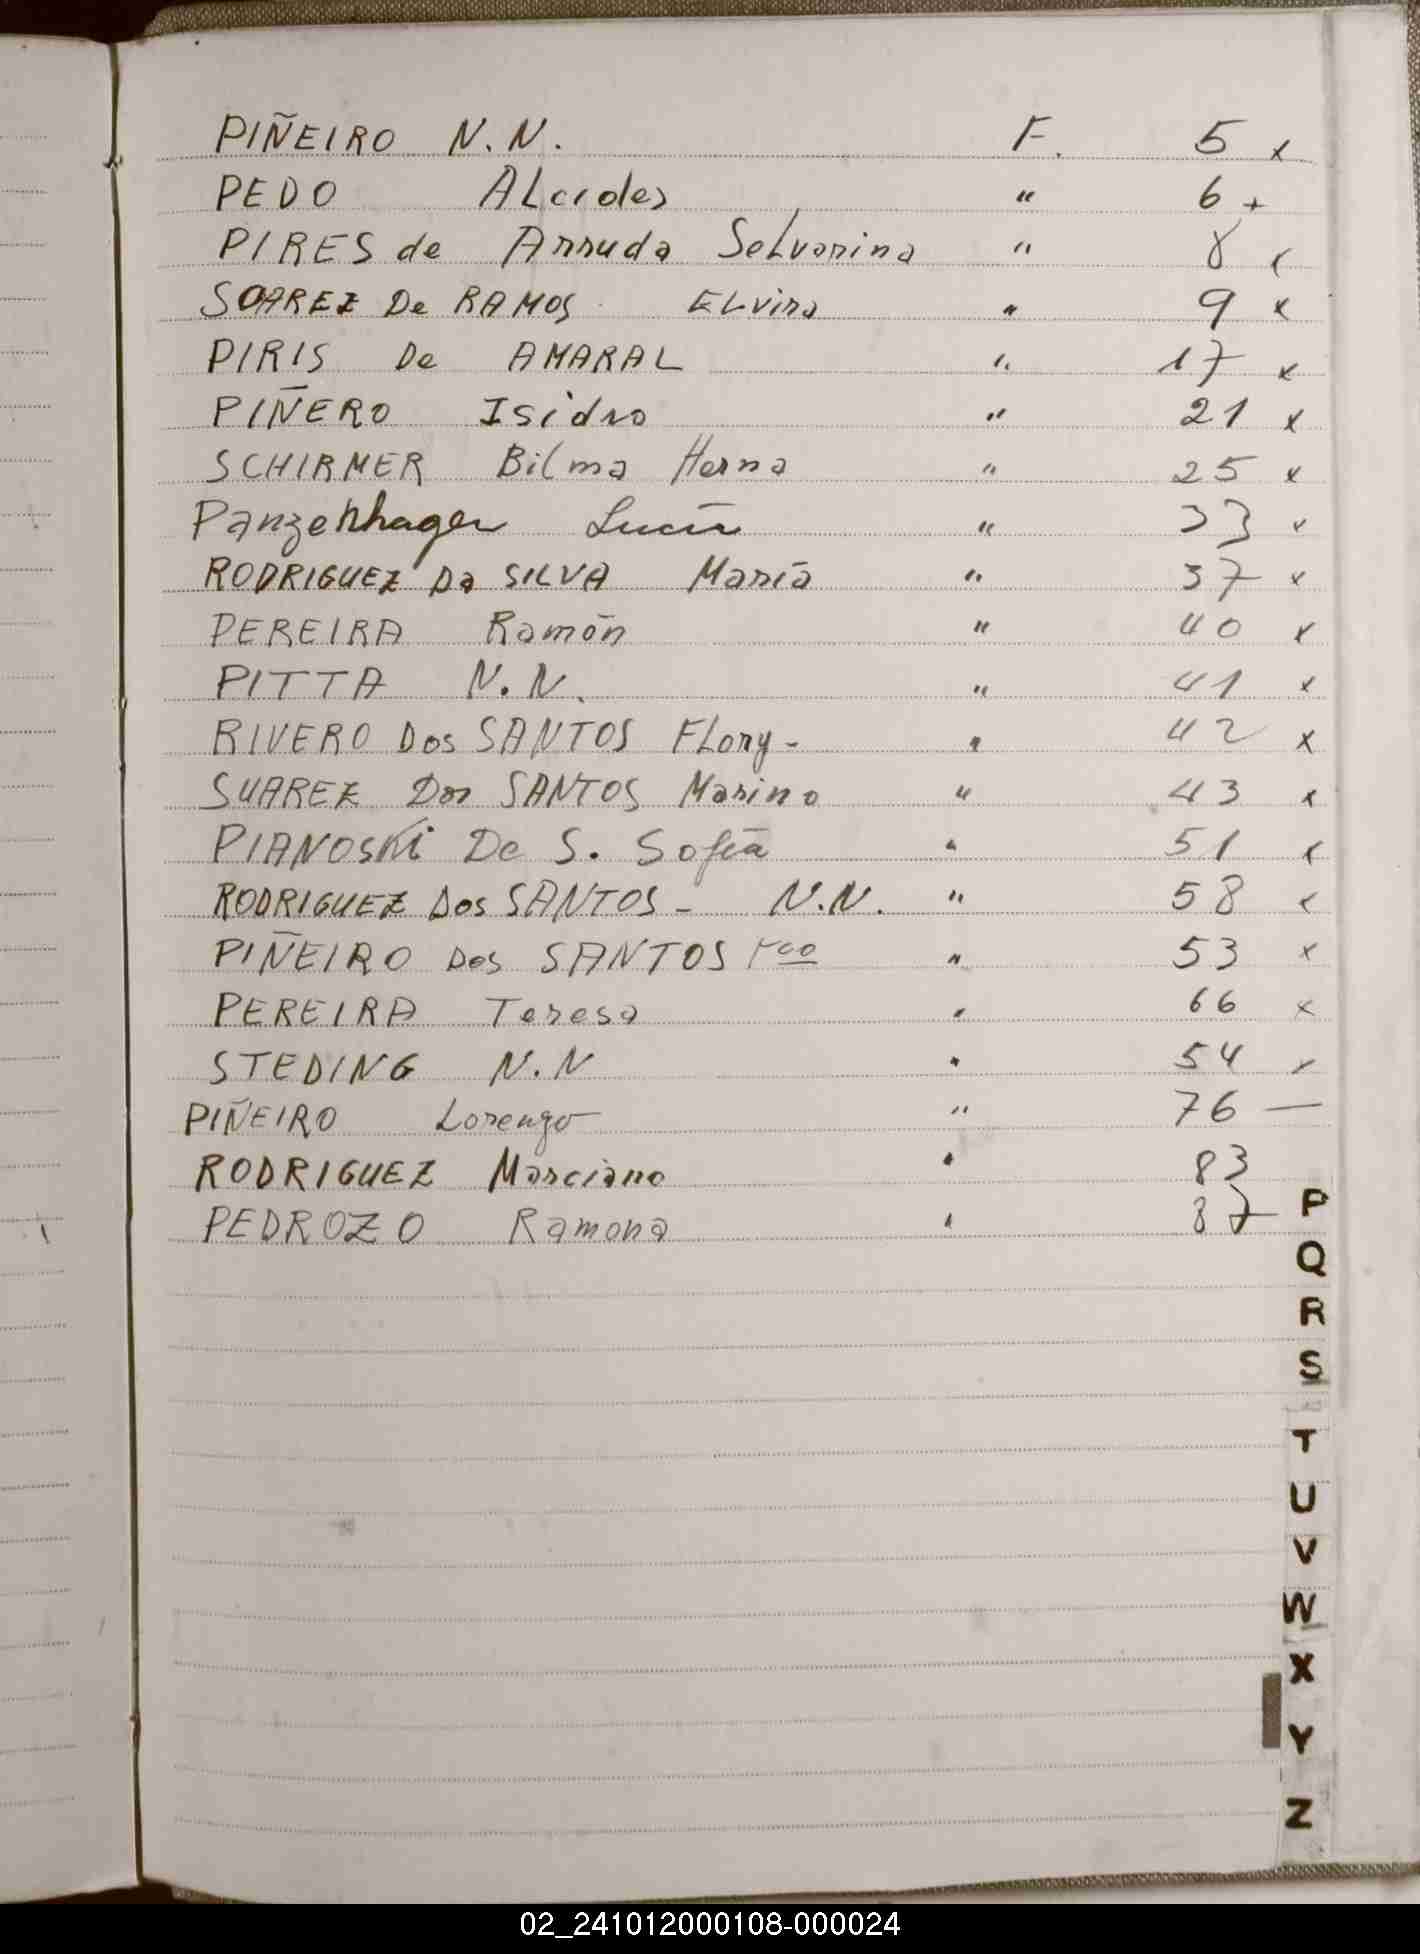 PIÑEIRO N.N. F. 5 x
PEDO ALcides " 6 +
PIRES de Arruda SeLvarina " 8 x
SOAREZ De RAMOS ELvira " 9 x
PIRIS De AMARAL " 17 x
PIÑERO Isidro " 21 x
SCHIRMER Bilma Herna " 25 x
Panzenhagen Lucía " 33 x
RODRIGUEZ Da SILVA María " 37 x
PEREIRA Ramón " 40 x
PITTA N.N. " 41 x
RIVERO Dos SANTOS FLory- " 42 x
SUAREZ Dos SANTOS Marino " 43 x
PIANOSKi De S. Sofía " 51 x
RODRIGUEZ Dos SANTOS - N.N. " 58 x
PIÑEIRO Dos SANTOS Fco " 53 x
PEREIRA Teresa " 66 x
STEDING N.N " 54 x
PIÑEIRO Lorenzo " 76 —
RODRIGUEZ Marciano " 83
PEDROZO Ramona " 87
P
Q
R
S
T
U
V
W
X
Y
Z
02_241012000108-000024